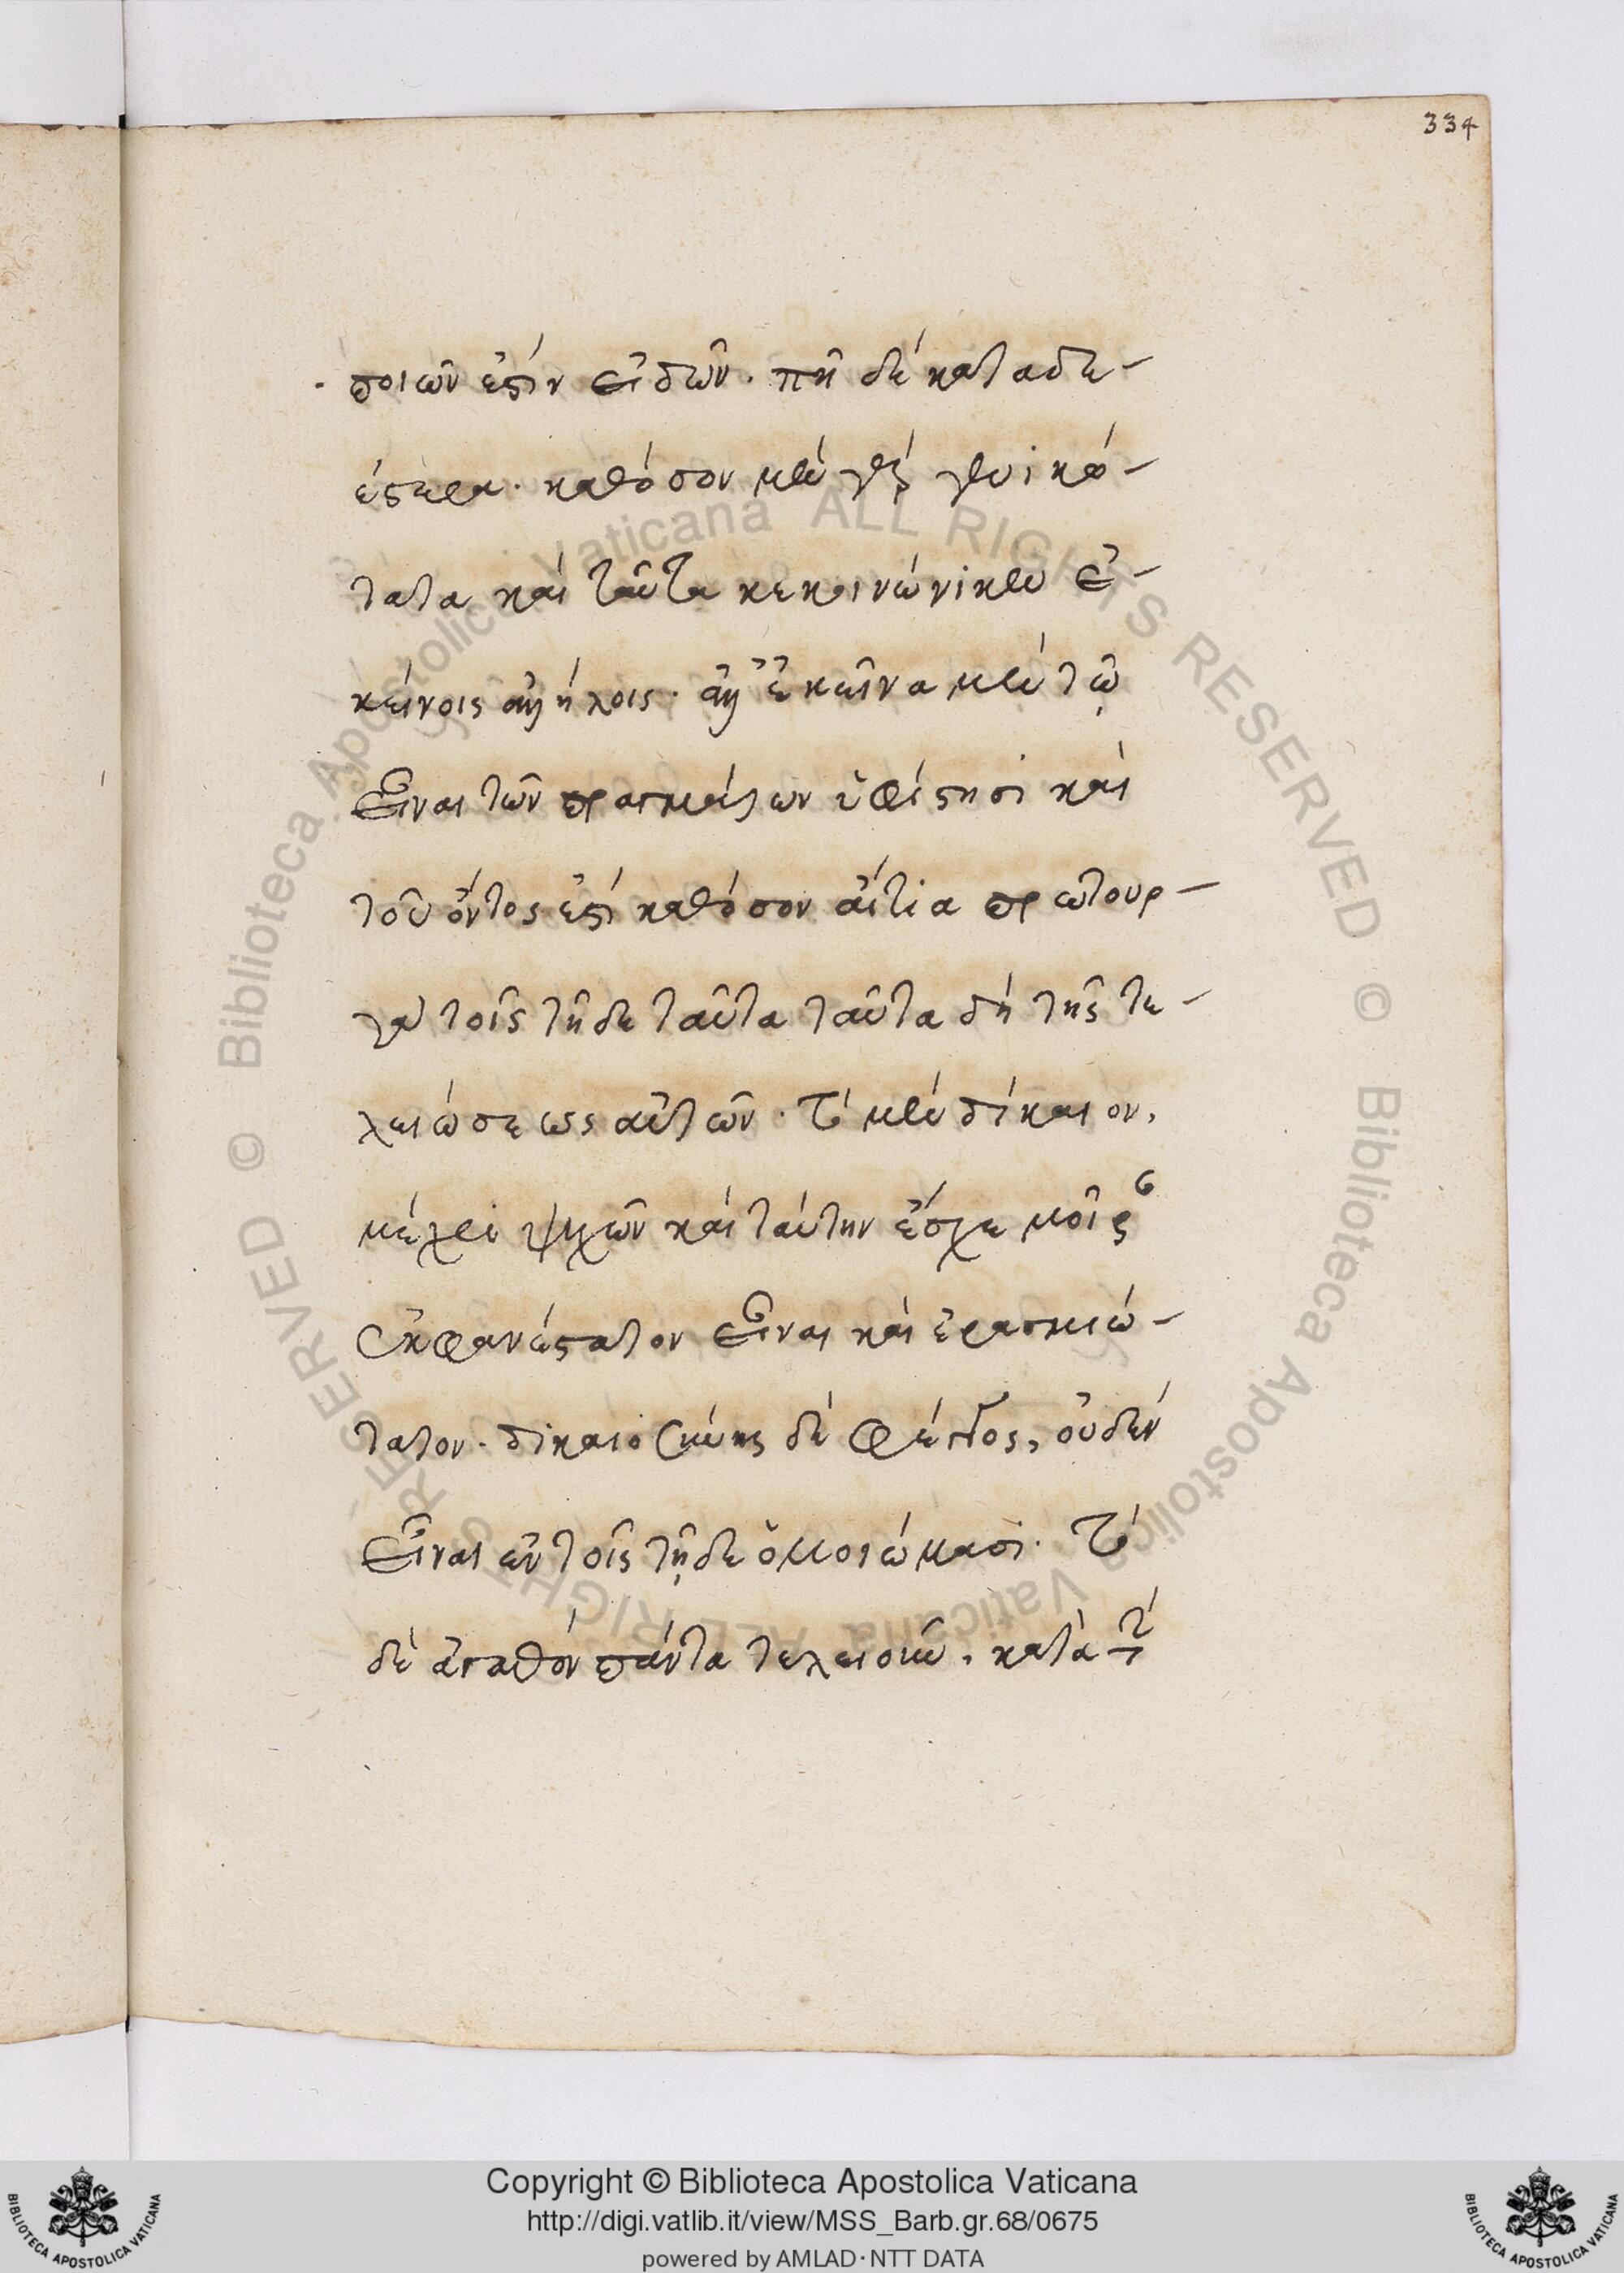 334
ποιῶν ἐστὶν εἰδῶν. πῆ δὲ καταδε-
έστερα. καθόσον μὲν γὰρ γενικώ-
τατα καὶ ταῦτα κεκοινώνικεν ἐ-
κείνοις ἀλλήλοις. ἀλλ' ἐκεῖνα μὲν τῷ
εἶναι τῶν πραγμάτων ὑφίστησι καὶ
τοῦ ὄντος ἐστὶ καθόσον αἴτια πρωτουρ-
γὰ τοῖς τῆδε ταῦτα ταῦτα δὴ τῆς τε-
λειώσεως αὐτῶν. τὸ μὲν δίκαιον,
μέχρι ψυχῶν καὶ ταύτην ἔσχε μοῖραν
ἐκφανέστατον εἶναι καὶ ἐρασμιώ-
τατον. δικαιοσύνης δὲ φέγγος, οὐδὲν
εἶναι ἐν τοῖς τῇδε ὁμοιώμασι. τὸ
δὲ ἀγαθὸν πάντα τελειοῦν, κατὰ τὴν
Copyright © Biblioteca Apostolica Vaticana
http://digi.vatlib.it/view/MSS_Barb.gr.68/0675
powered by AMLAD·NTT DATA
BIBLIOTECA APOSTOLICA VATICANA
BIBLIOTECA APOSTOLICA VATICANA
© Biblioteca Apostolica Vaticana ALL RIGHTS RESERVED © Biblioteca Apostolica Vaticana ALL RIGHTS RESERVED